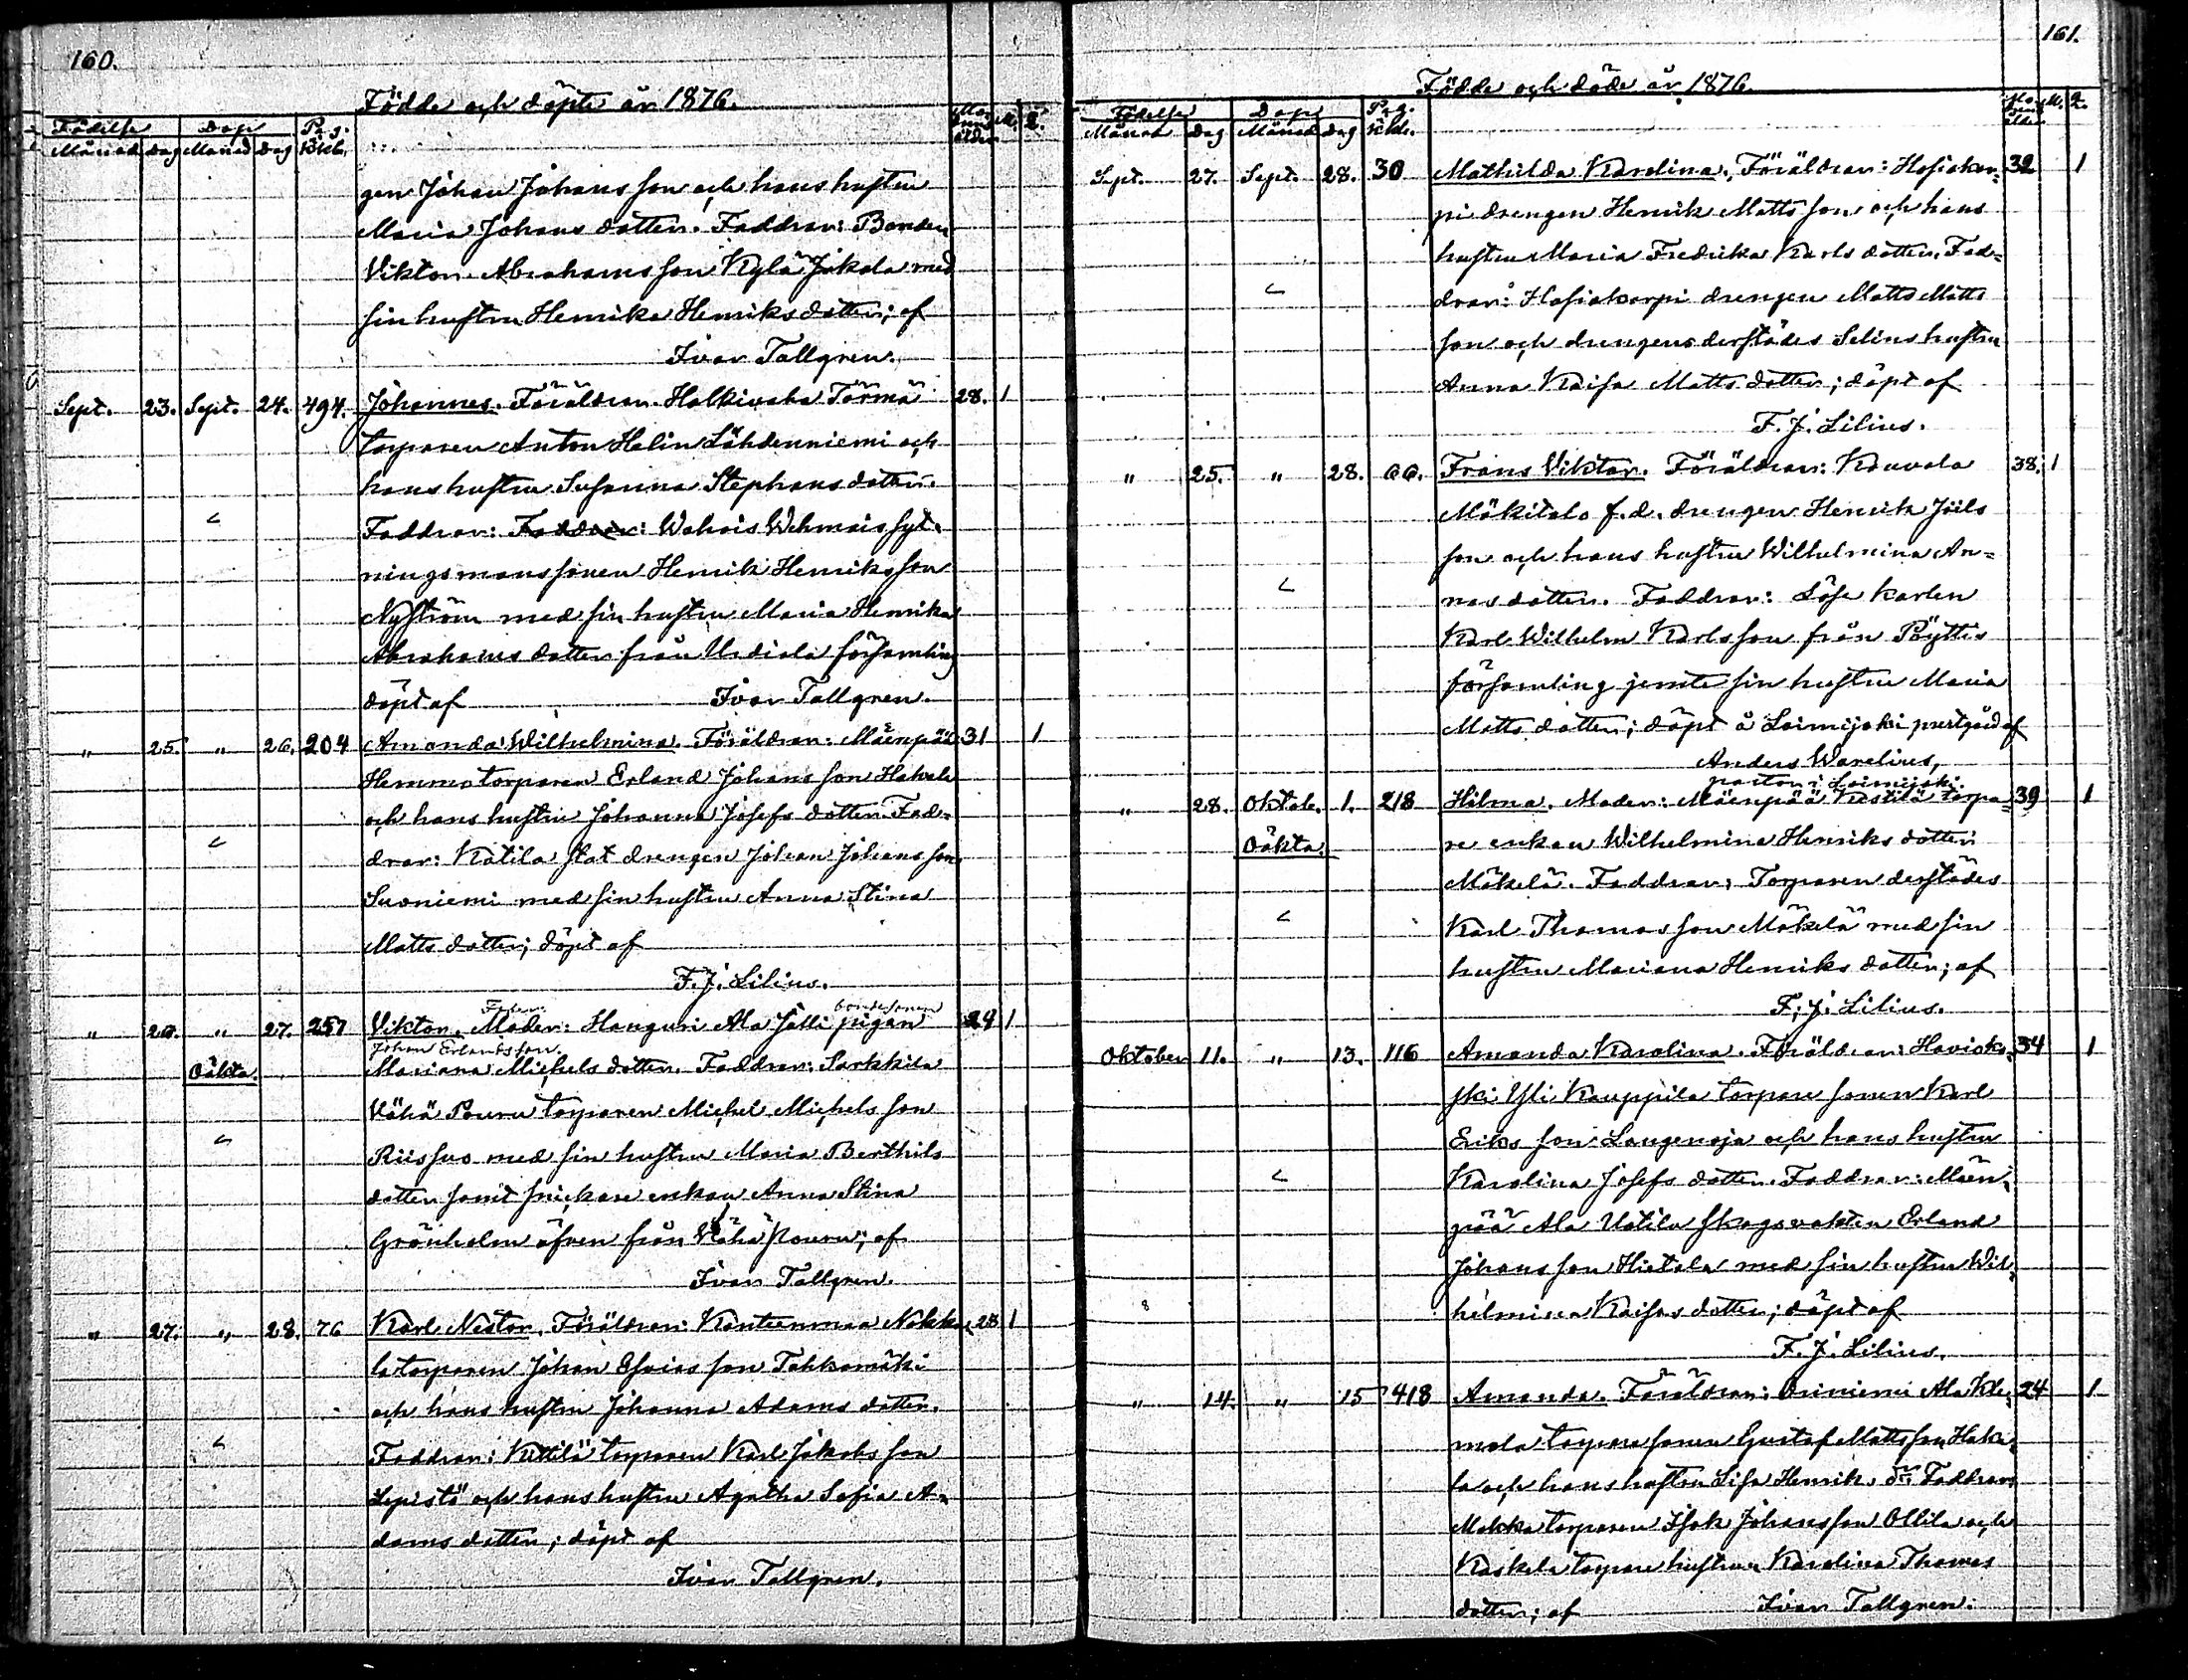 160.
Födde och döpte år 1876.
Födelse Dop Pag.
Månad Dag Månad Dag M. Q.
gen Johan Johansson och hans hustru
Maria Johansdotter. Faddrar: Bonden
Viktor Abrahamsson Kylä Jakola med
sin hustru Henrika Henriksdotter; af
Ivar Tallgren.
Sept. 23. Sept. 24. 494. Johannes. Föräldrar: Halkivaha Törmä 28. 1
torparen Anton Helin Lähdenniemi och
hans hustru Susanna Stephansdotter.
Faddrar: Faddrar: Wahois Wehmais syt-
ningsmanssonen Henrik Henriksson
Nyström med sin hustru Maria Henrika
Abrahamsdotter från Urdiala församling
döpt af Ivar Tallgren.
" 25. " 26. 204 Amanda Wilhelmina. Föräldrar: Mäenpää 31 1
Hemmo torparen Erland Johansson Hakala
och hans hustru Johanna Josefsdotter. Fad-
drar: Kätila stat drengen Johan Johansson
Suoniemi med sin hustru Anna Stina
Mattsdotter; döpt af
F. J. Lilius.
Fader: bondesonen
" 26. " 27. 257 Viktor. Moder: Haaguri Ala Jälli pigan 24 1
Johan Erlandsson.
Oäkta. Mariana Michelsdotter. Faddrar: Sarkkila
Vähä Pouru torparen Michel Michelsson
Riissuo med sin hustru Maria Berthils
dotter samt snickare enkan Anna Stina
Grönholm äfven från Vähä Pouru; af
Ivar Tallgren.
" 27. " 28. 76 Karl Nestor. Föräldrar: Kanteenmaa Nokka- 28 1
la torparen Johan Esaiasson Tahkomäki
och hans hustru Johanna Adamsdotter.
Faddrar: Kuttilä torparen Karl Jakobsson
Lepistö och hans hustru Agatha Sofia A-
damsdotter; döpt af
Ivar Tallgren.
161.
Födde och döde år 1876.
Födelse Dop Pag.
Månad Dag Månad Dag M. Q.
Sept. 27. Sept. 28. 30 Mathilda Karolina. Föräldrar: Hosiokor- 32 1
pi drengen Henrik Mattsson och hans
hustru Maria Fredrika Karlsdotter. Fad-
drar: Hosiokorpi drengen Matts Matts
son och drengens derstädes Selins hustru
Anna Kaisa Mattsdotter; döpt af
F. J. Lilius.
" 25. " 28. 66. Frans Viktor. Föräldrar: Kauvola 38. 1
Mäkitalo f. d. drengen Henrik Joels
son och hans hustru Wilhelmina An-
nasdotter. Faddrar: Löse karlen
Karl Wilhelm Karlsson från Pöyttis
församling jemte sin hustru Maria
Mattsdotter; döpt å Loimijoki prestgård af
Anders Warelius,
pastor i Loimijoki.
" 28. Oktob. 1. 218 Hilma. Moder: Mäenpää Kestilä torpa- 39 1
Oäkta. re enkan Wilhelmina Henriksdotter
Mäkelä. Faddrar: Torparen derstädes
Karl Thomasson Mäkelä med sin
hustru Mariana Henriksdotter; af
F. J. Lilius.
Oktober 11. " 13. 116 Amanda Karolina. Föräldrar: Haviok- 34 1
ski Yli Kauppila torpare sonen Karl
Eriksson Laugenoja och hans hustru
Karolina Josefsdotter. Faddrar: Mäen-
pää Ala Uotila skogsvakten Erland
Johansson Hietala med sin hustru Wil-
helmina Kaisasdotter; döpt af
F. J. Lilius.
" 14. " 15 418 Amanda. Föräldrar: Oriniemi Ala Kle- 24 1
mola torpare sonen Gustaf Mattsson Haka-
la och hans hustru Lisa Henriksdr. Faddrar:
Makka torparen Isak Johansson Ollila och
Kaskela torpare hustrun Karolina Thomas
dotter; af Ivar Tallgren.